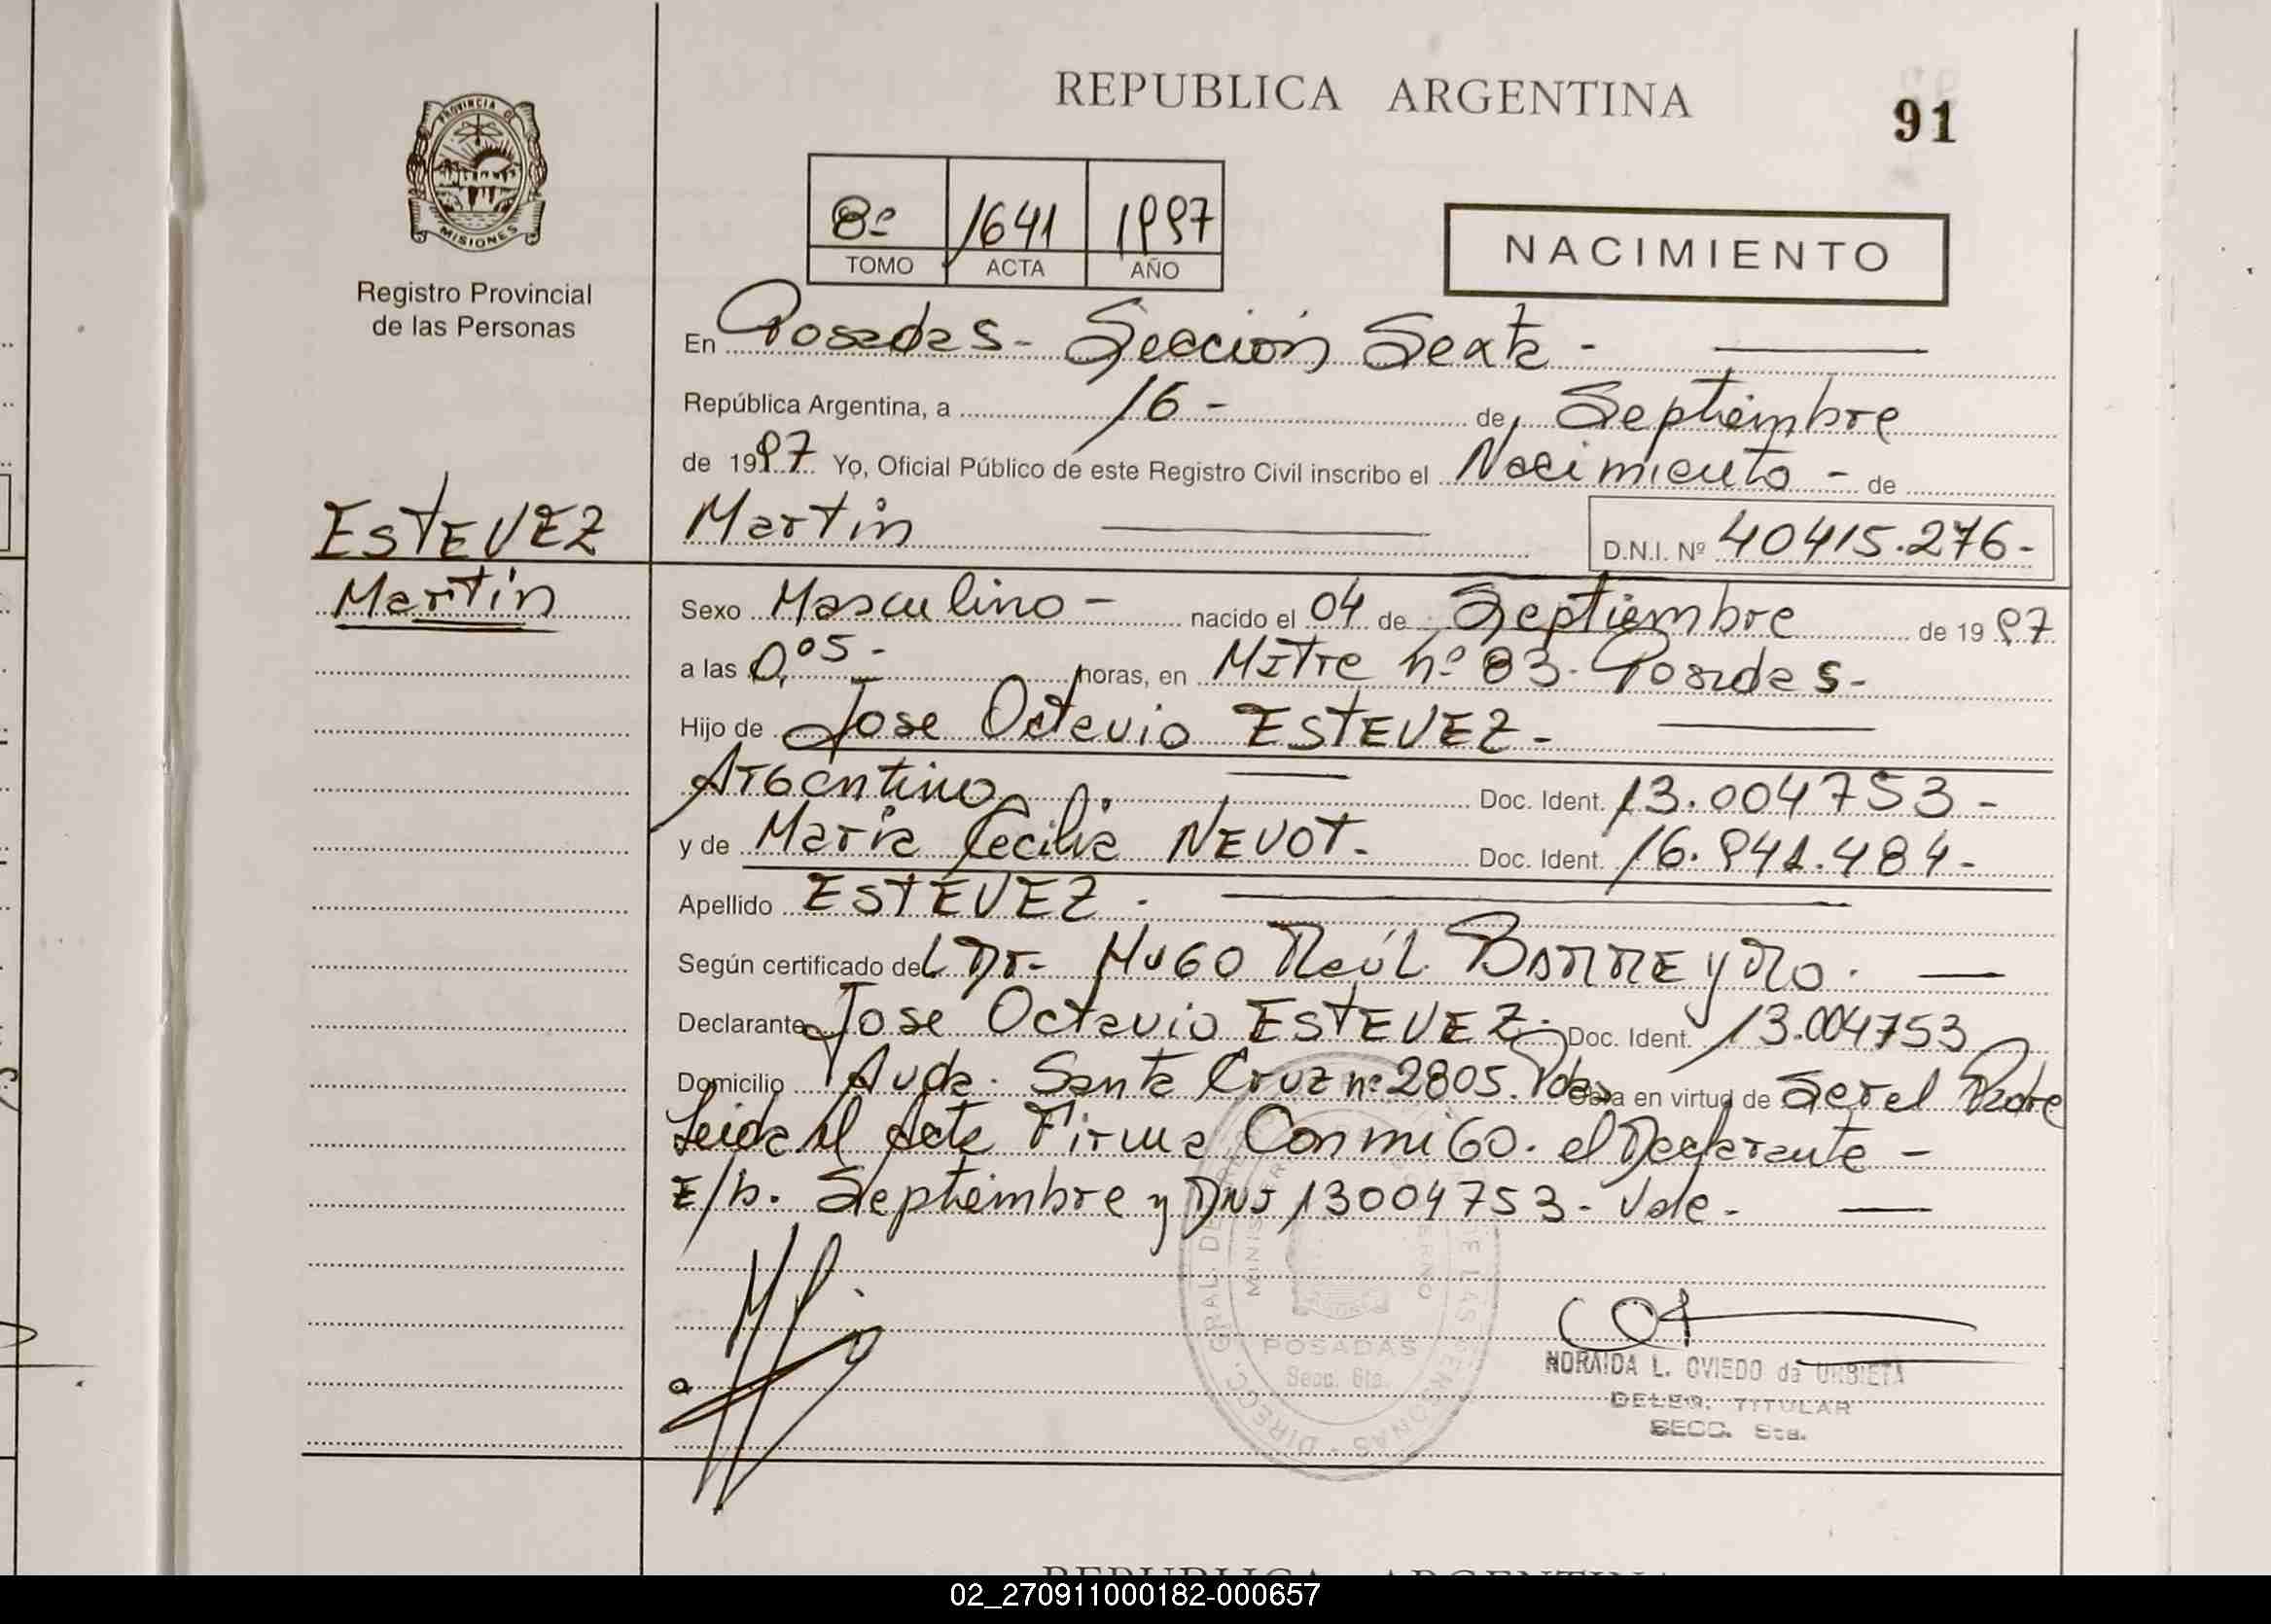 REPUBLICA ARGENTINA
91
PROVINCIA DE
MISIONES
Registro Provincial
de las Personas
8º 1641 1997
TOMO ACTA AÑO
NACIMIENTO
En Posadas - Sección Sexta -
República Argentina, a 16 - de Septiembre
de 1997 Yo, Oficial Público de este Registro Civil inscribo el Nacimiento - de
ESTEVEZ
Martín
Martín D.N.I. Nº 40415.276-
Sexo Masculino - nacido el 04 de Septiembre de 1997
a las 0,05 - horas, en Mitre nº 83 - Posadas -
Hijo de Jose Octavio ESTEVEZ -
Argentino Doc. Ident. 13.004753 -
y de María Cecilia NEVOT - Doc. Ident. 16.941.484 -
Apellido ESTEVEZ.
Según certificado del Dr. Hugo Raúl BARREyRo.
Declarante Jose Octavio ESTEVEZ - Doc. Ident. 13.004753
Domicilio Avda. Santa Cruz nº 2805. Pdas Obra en virtud de Ser el Padre
Leida el Acta Firma Conmigo. el Declarante -
E/b. Septiembre y DNI 13004753 - Vale -
POSADAS
Secc. 6ta.
NORAIDA L. OVIEDO de URBIETA
DELEG. TITULAR
SECC. 6ta.
REPUBLICA ARGENTINA
02_270911000182-000657